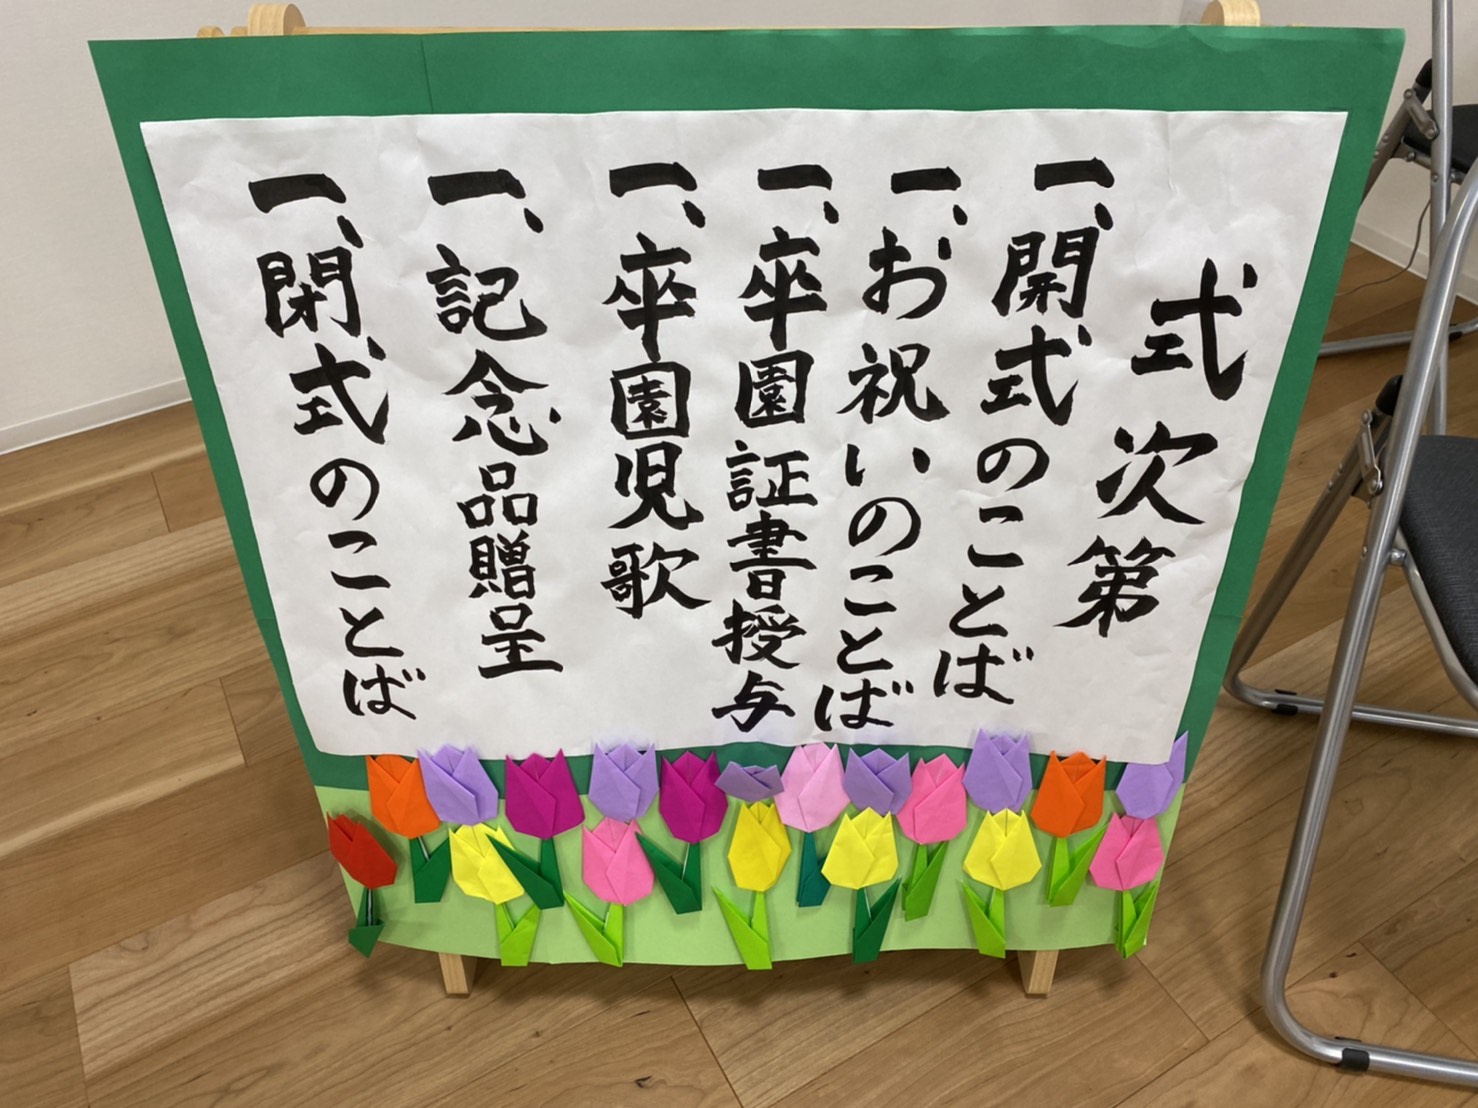 式次第
一、開式のことば
一、お祝いのことば
一、卒園証書授与
一、卒園児歌
一、記念品贈呈
一、閉式のことば